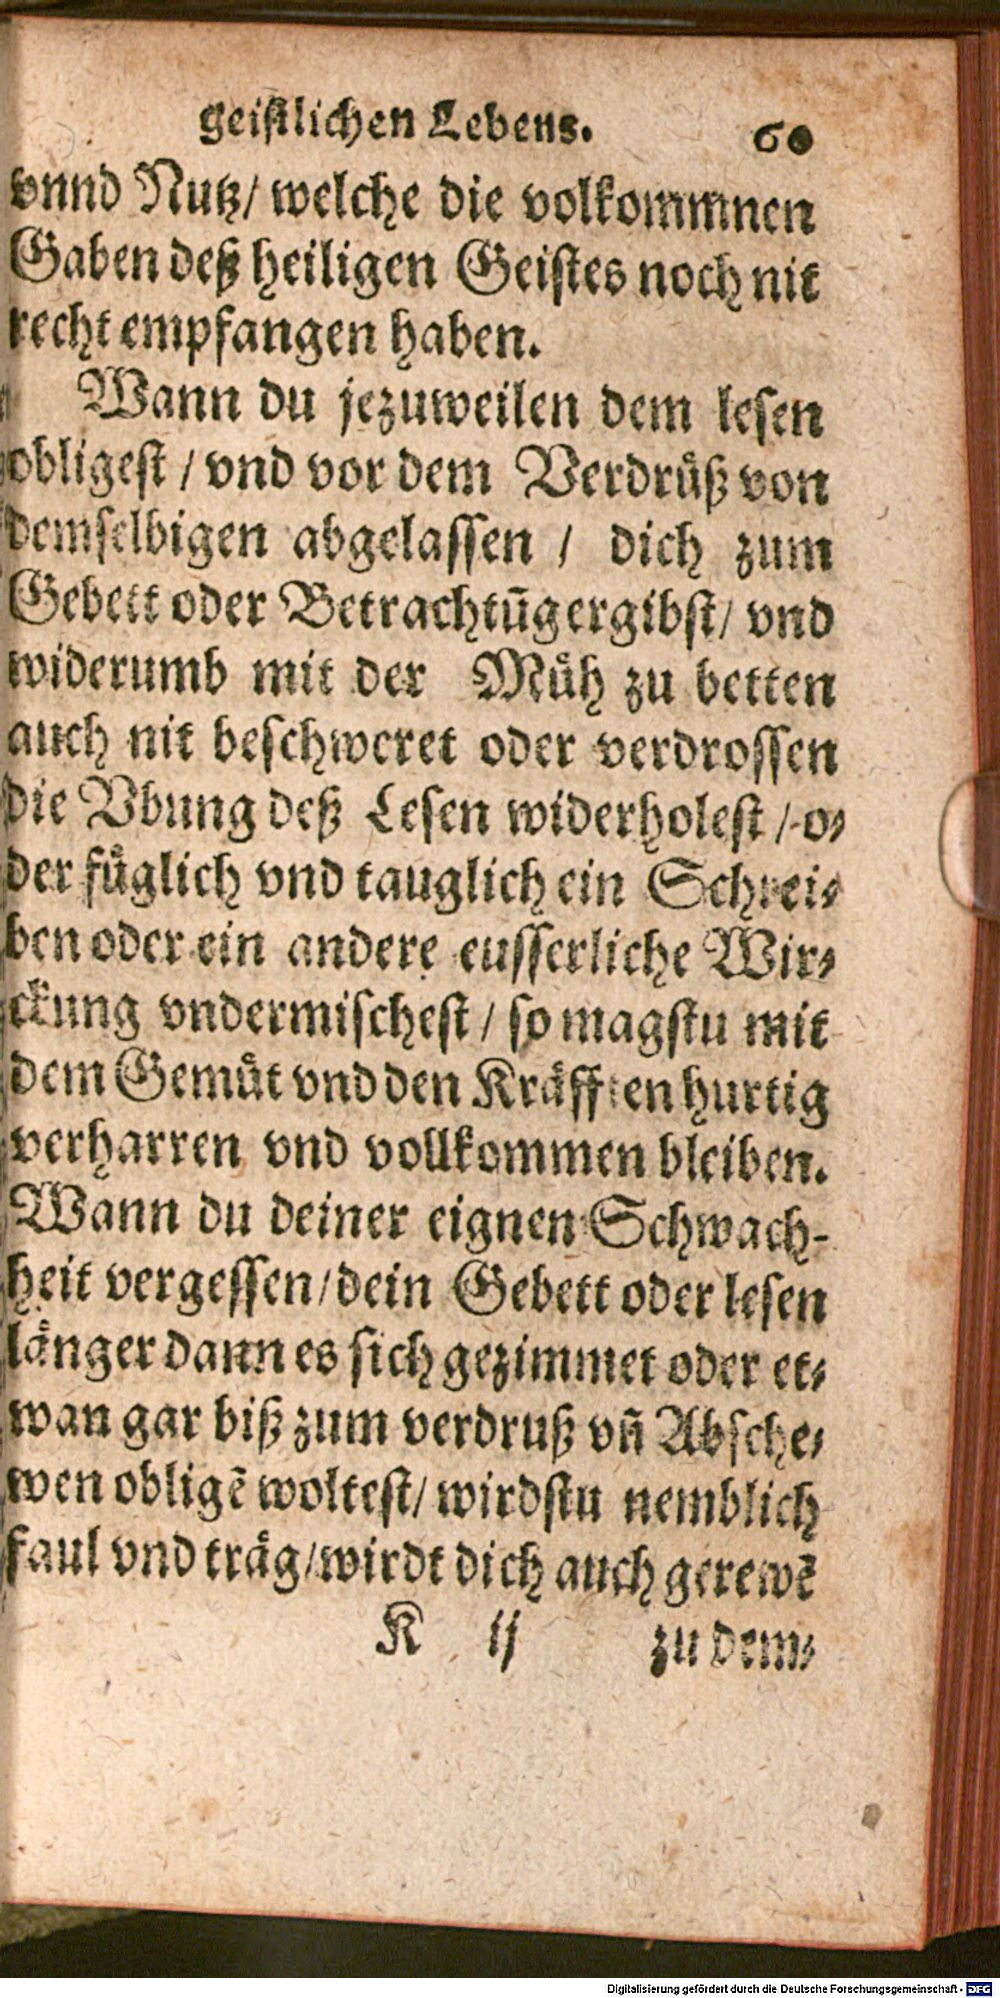 geistlichen Lebens. 60
vnnd Nutz/ welche die volkommnen
Gaben deß heiligen Geistes noch nit
recht empfangen haben.
Wann du jezuweilen dem lesen
obligest / vnd vor dem Verdrůß von
demselbigen abgelassen / dich zum
Gebett oder Betrachtūg ergibst/ vnd
widerumb mit der Můh zu betten
auch nit beschweret oder verdrossen
die Vbung deß Lesen widerholest / o-
der fůglich vnd tauglich ein Schrei-
ben oder ein andere eusserliche Wir-
ckung vndermischest / so magstu mit
dem Gemůt vnd den Kräfften hurtig
verharren vnd vollkommen bleiben.
Wann du deiner eignen Schwach-
heit vergessen/ dein Gebett oder lesen
länger dann es sich gezimmet oder et-
wan gar biß zum verdruß vn̄ Absche-
wen obligē woltest/ wirdstu nemblich
faul vnd träg/ wirdt dich auch gerewē
K ij zu dem-
Digitalisierung gefördert durch die Deutsche Forschungsgemeinschaft - DFG